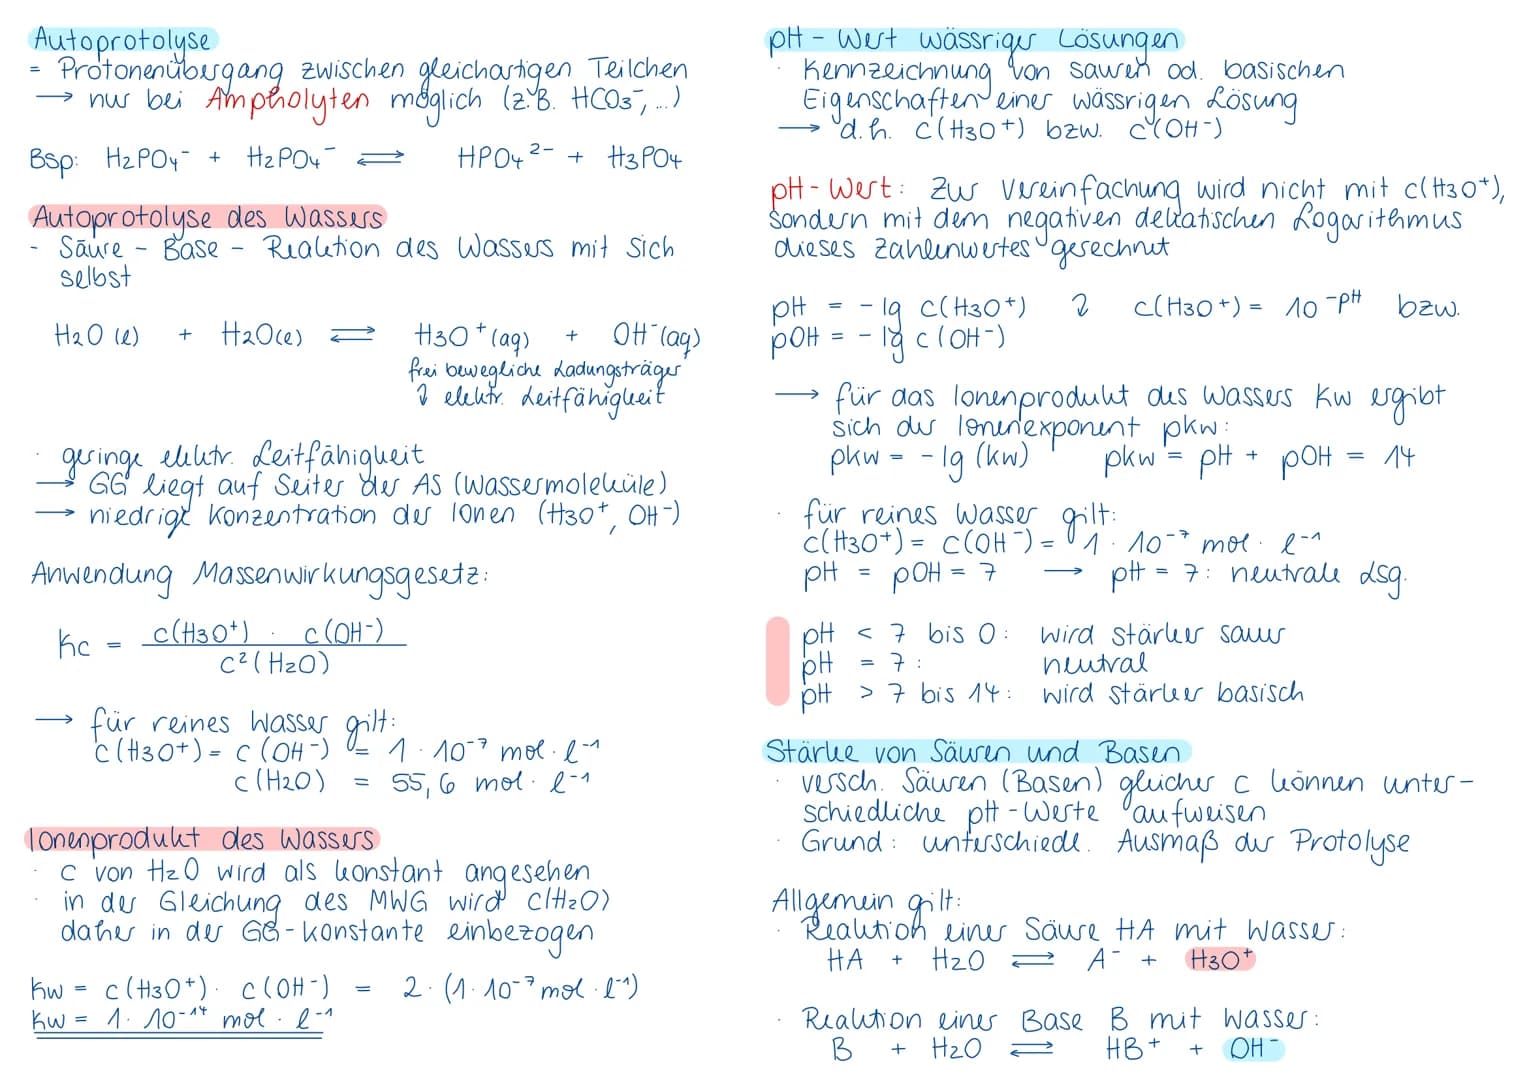 Autoprotolyse
= Protonenübergang zwischen gleichartigen Teilchen
→ nur bei Ampholyten möglich (z.B. HCO3⁻, ...)
Bsp: H2PO4⁻ + H2PO4⁻ ⇌ HPO4²⁻ + H3PO4
Autoprotolyse des Wassers
- Säure - Base - Reaktion des Wassers mit sich
selbst
H2O (l) + H2O(l) ⇌ H3O⁺(aq) + OH⁻(aq)
frei bewegliche Ladungsträger
↷ elektr. Leitfähigkeit
· geringe elektr. Leitfähigkeit
→ GG liegt auf Seiter der AS (Wassermoleküle)
→ niedrige Konzentration der Ionen (H3O⁺, OH⁻)
Anwendung Massenwirkungsgesetz:
Kc = c(H3O⁺) · c(OH⁻)
c²(H2O)
→ für reines Wasser gilt:
c(H3O⁺) = c(OH⁻) = 1 · 10⁻⁷ mol · l⁻¹
c(H2O) = 55,6 mol · l⁻¹
Ionenprodukt des Wassers
· c von H2O wird als konstant angesehen
· in der Gleichung des MWG wird c(H2O)
daher in der GG-Konstante einbezogen
Kw = c(H3O⁺) · c(OH⁻) = 2 · (1 · 10⁻⁷ mol · l⁻¹)
Kw = 1 · 10⁻¹⁴ mol · l⁻¹
pH - Wert wässriger Lösungen
· Kennzeichnung von sauren od. basischen
Eigenschaften einer wässrigen Lösung
→ d.h. c(H3O⁺) bzw. c(OH⁻)
pH - Wert: Zur Vereinfachung wird nicht mit c(H3O⁺),
sondern mit dem negativen dekatischen Logarithmus
dieses Zahlenwertes gerechnet
pH = - lg c(H3O⁺) ↷ c(H3O⁺) = 10⁻ᵖᴴ bzw.
pOH = - lg c(OH⁻)
→ für das Ionenprodukt des Wassers Kw ergibt
sich der Ionenexponent pKw:
pKw = - lg (Kw) pKw = pH + pOH = 14
· für reines Wasser gilt:
c(H3O⁺) = c(OH⁻) = 1 · 10⁻⁷ mol · l⁻¹
pH = pOH = 7 → pH = 7: neutrale Lsg.
pH < 7 bis 0: wird stärker sauer
pH = 7: neutral
pH > 7 bis 14: wird stärker basisch
Stärke von Säuren und Basen
· versch. Säuren (Basen) gleicher c können unter-
schiedliche pH-Werte aufweisen
· Grund: unterschiedl. Ausmaß der Protolyse
Allgemein gilt:
· Reaktion einer Säure HA mit Wasser:
HA + H2O ⇌ A⁻ + H3O⁺
· Reaktion einer Base B mit Wasser:
B + H2O ⇌ HB⁺ + OH⁻